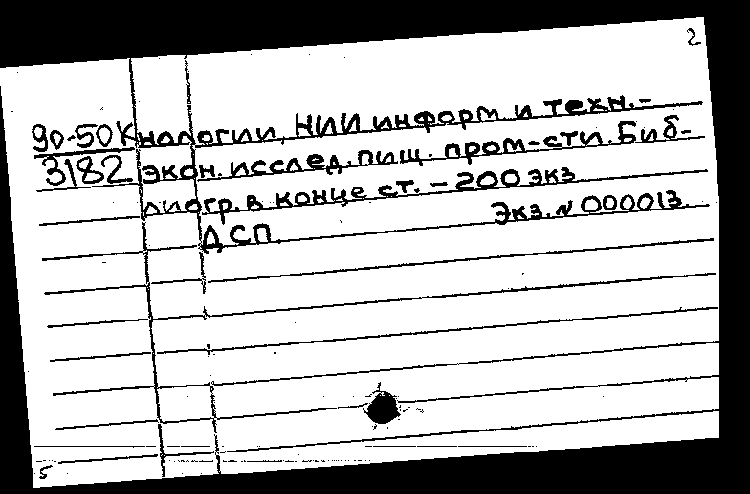 2
90-50К нологии, НИИ информ. и техн.-
3182 экон. исслед. пищ. пром-сти. Биб-
лиогр. в конце ст. – 200 экз
Экз. № 000013.
ДСП.
5